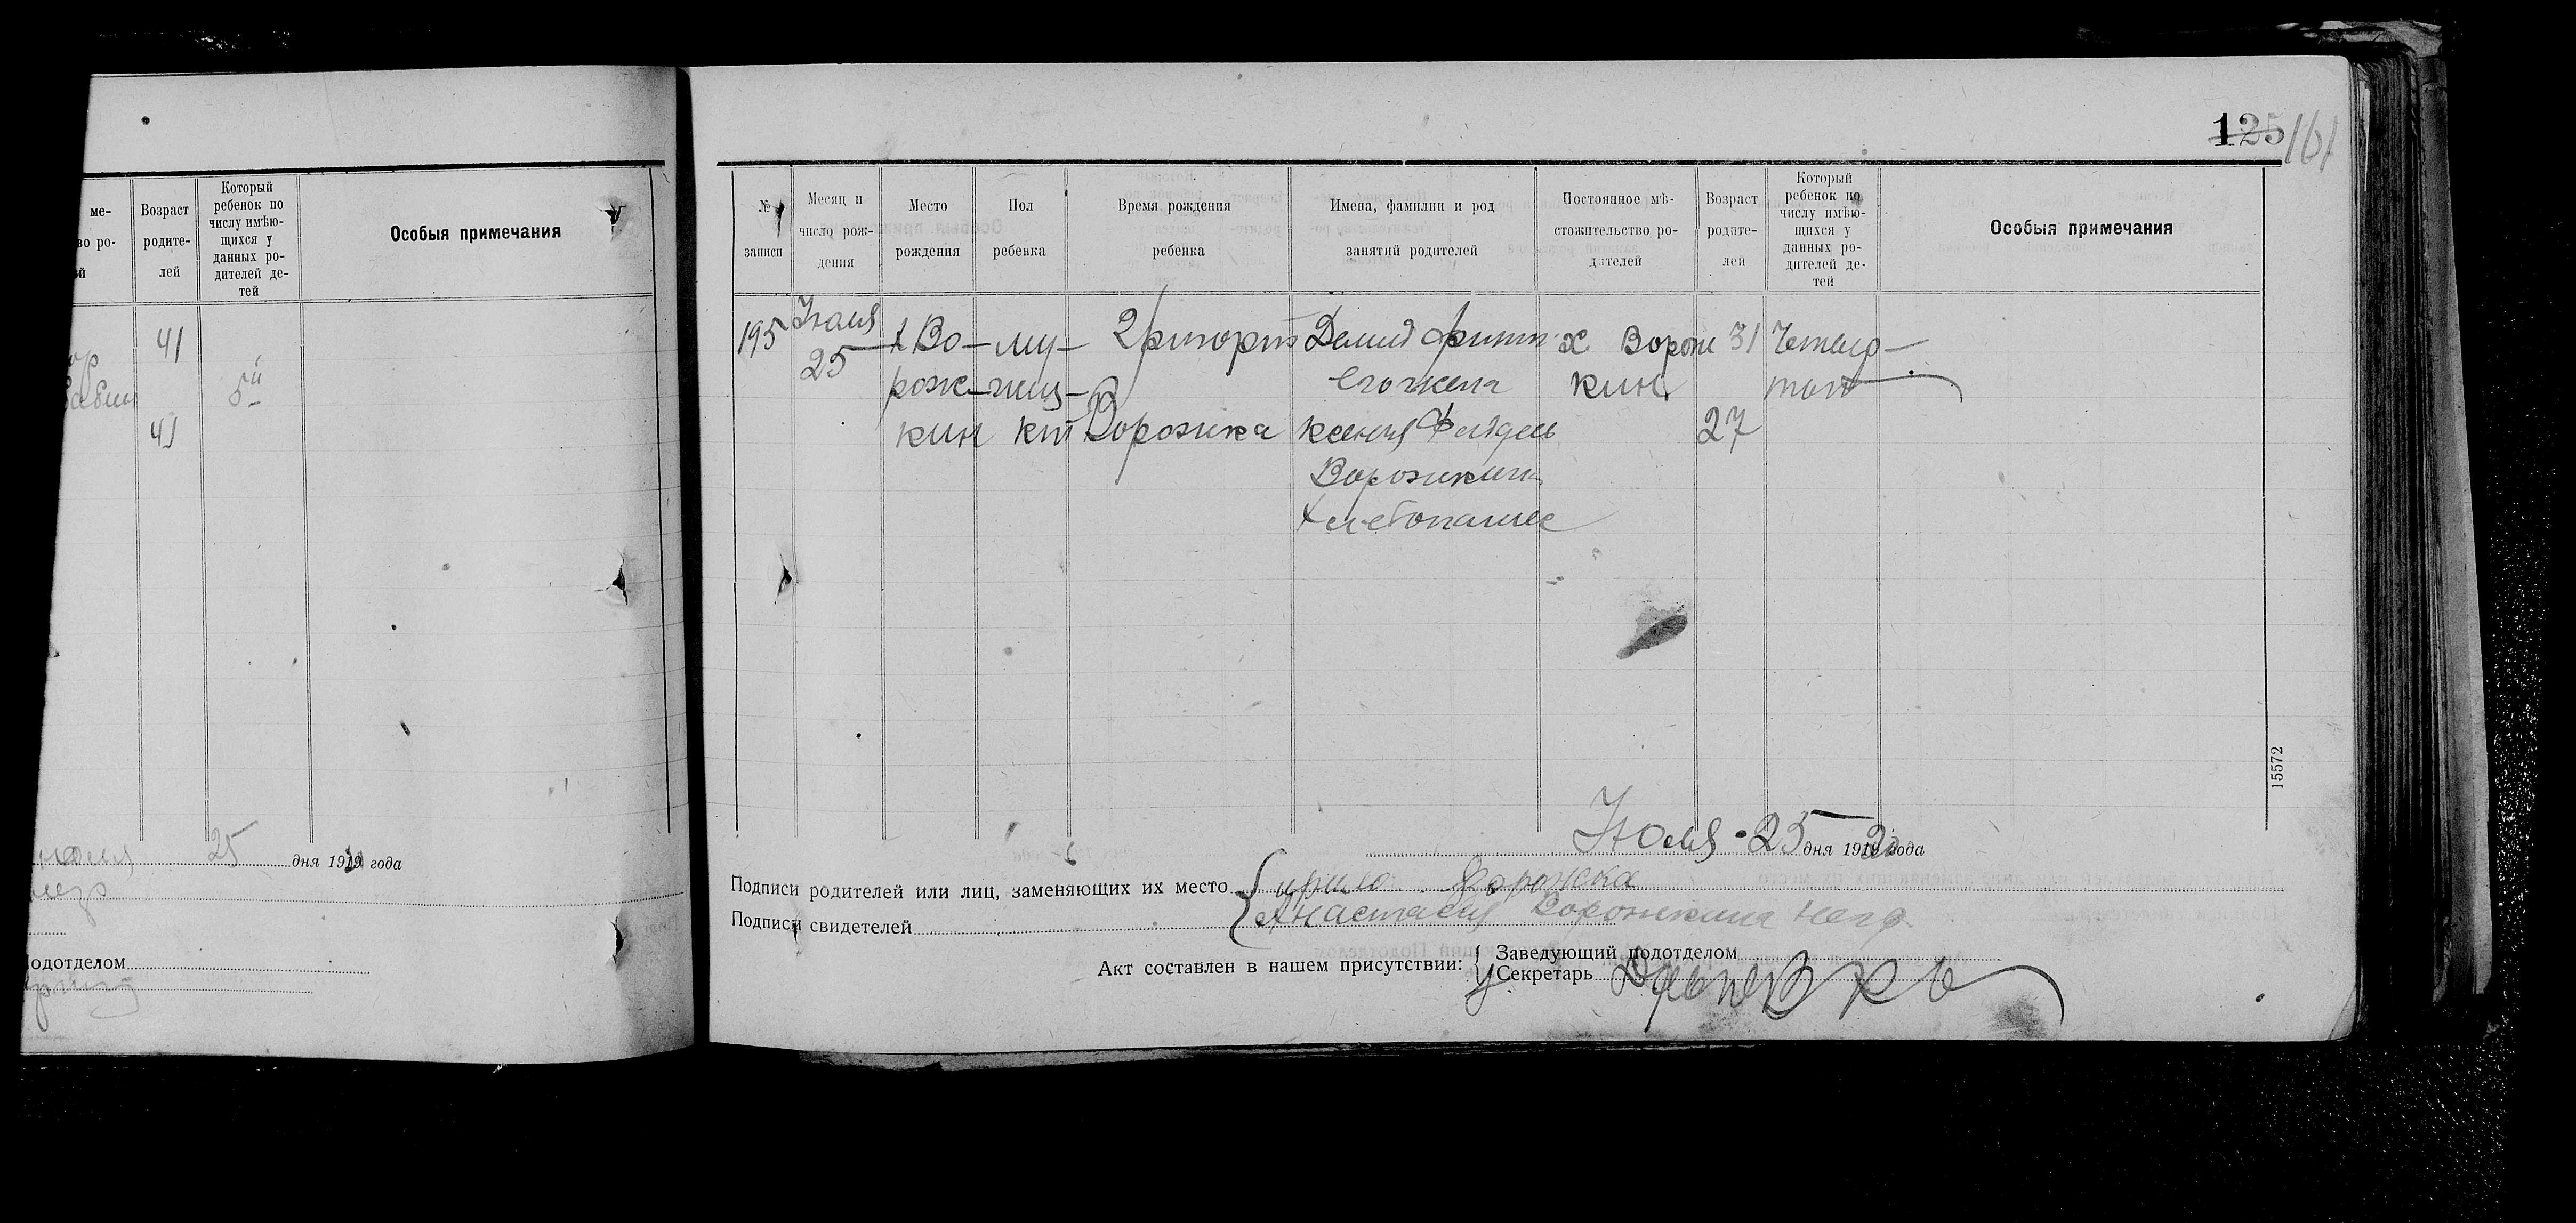 125 161
ме-
во ро-
й
Возраст
родите-
лей
Который
ребенок по
числу имѣю-
щихся у
данных ро-
дителей де-
тей
Особыя примечания
41
5й
41
июля 25 дня 1919 года
подотделом
№
записи
Месяц и
число рож-
дения
Место
рождения
Пол
ребенка
Время рождения
ребенка
Имена, фамилии и род
занятий родителей
Постоянное мѣ-
стожительство ро-
дителей
Возраст
родите-
лей
Который
ребенок по
числу имѣю-
щихся у
данных ро-
дителей де-
тей
Особыя примечания
195
Июля
25
х Во-
рож-
кин
му-
жщ-
кт
Ворожка
Демид
его жена
Ксения
Ворожкин
Хлебопашес
х Ворож
кин
31
27
Четвер-
тый
15572
Июля 25 дня 1920 года
Подписи родителей или лиц, заменяющих их место
Ворожка
Подписи свидетелей Анастасия Ворожкина негр.
Акт составлен в нашем присутствии: { Заведующий подотделом
Секретарь